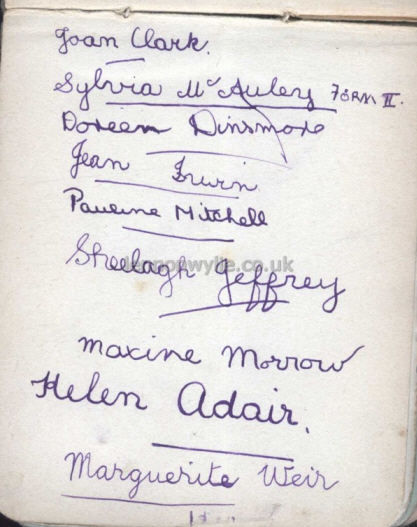 Joan Clark.
Sylvia McAuley FORM II.
Doreen Dinsmore
Jean Irwin
Pauline Mitchell
lennonwylie.co.uk
Sheelagh Jeffrey
Maxine Morrow
Helen Adair.
Marguerite Weir